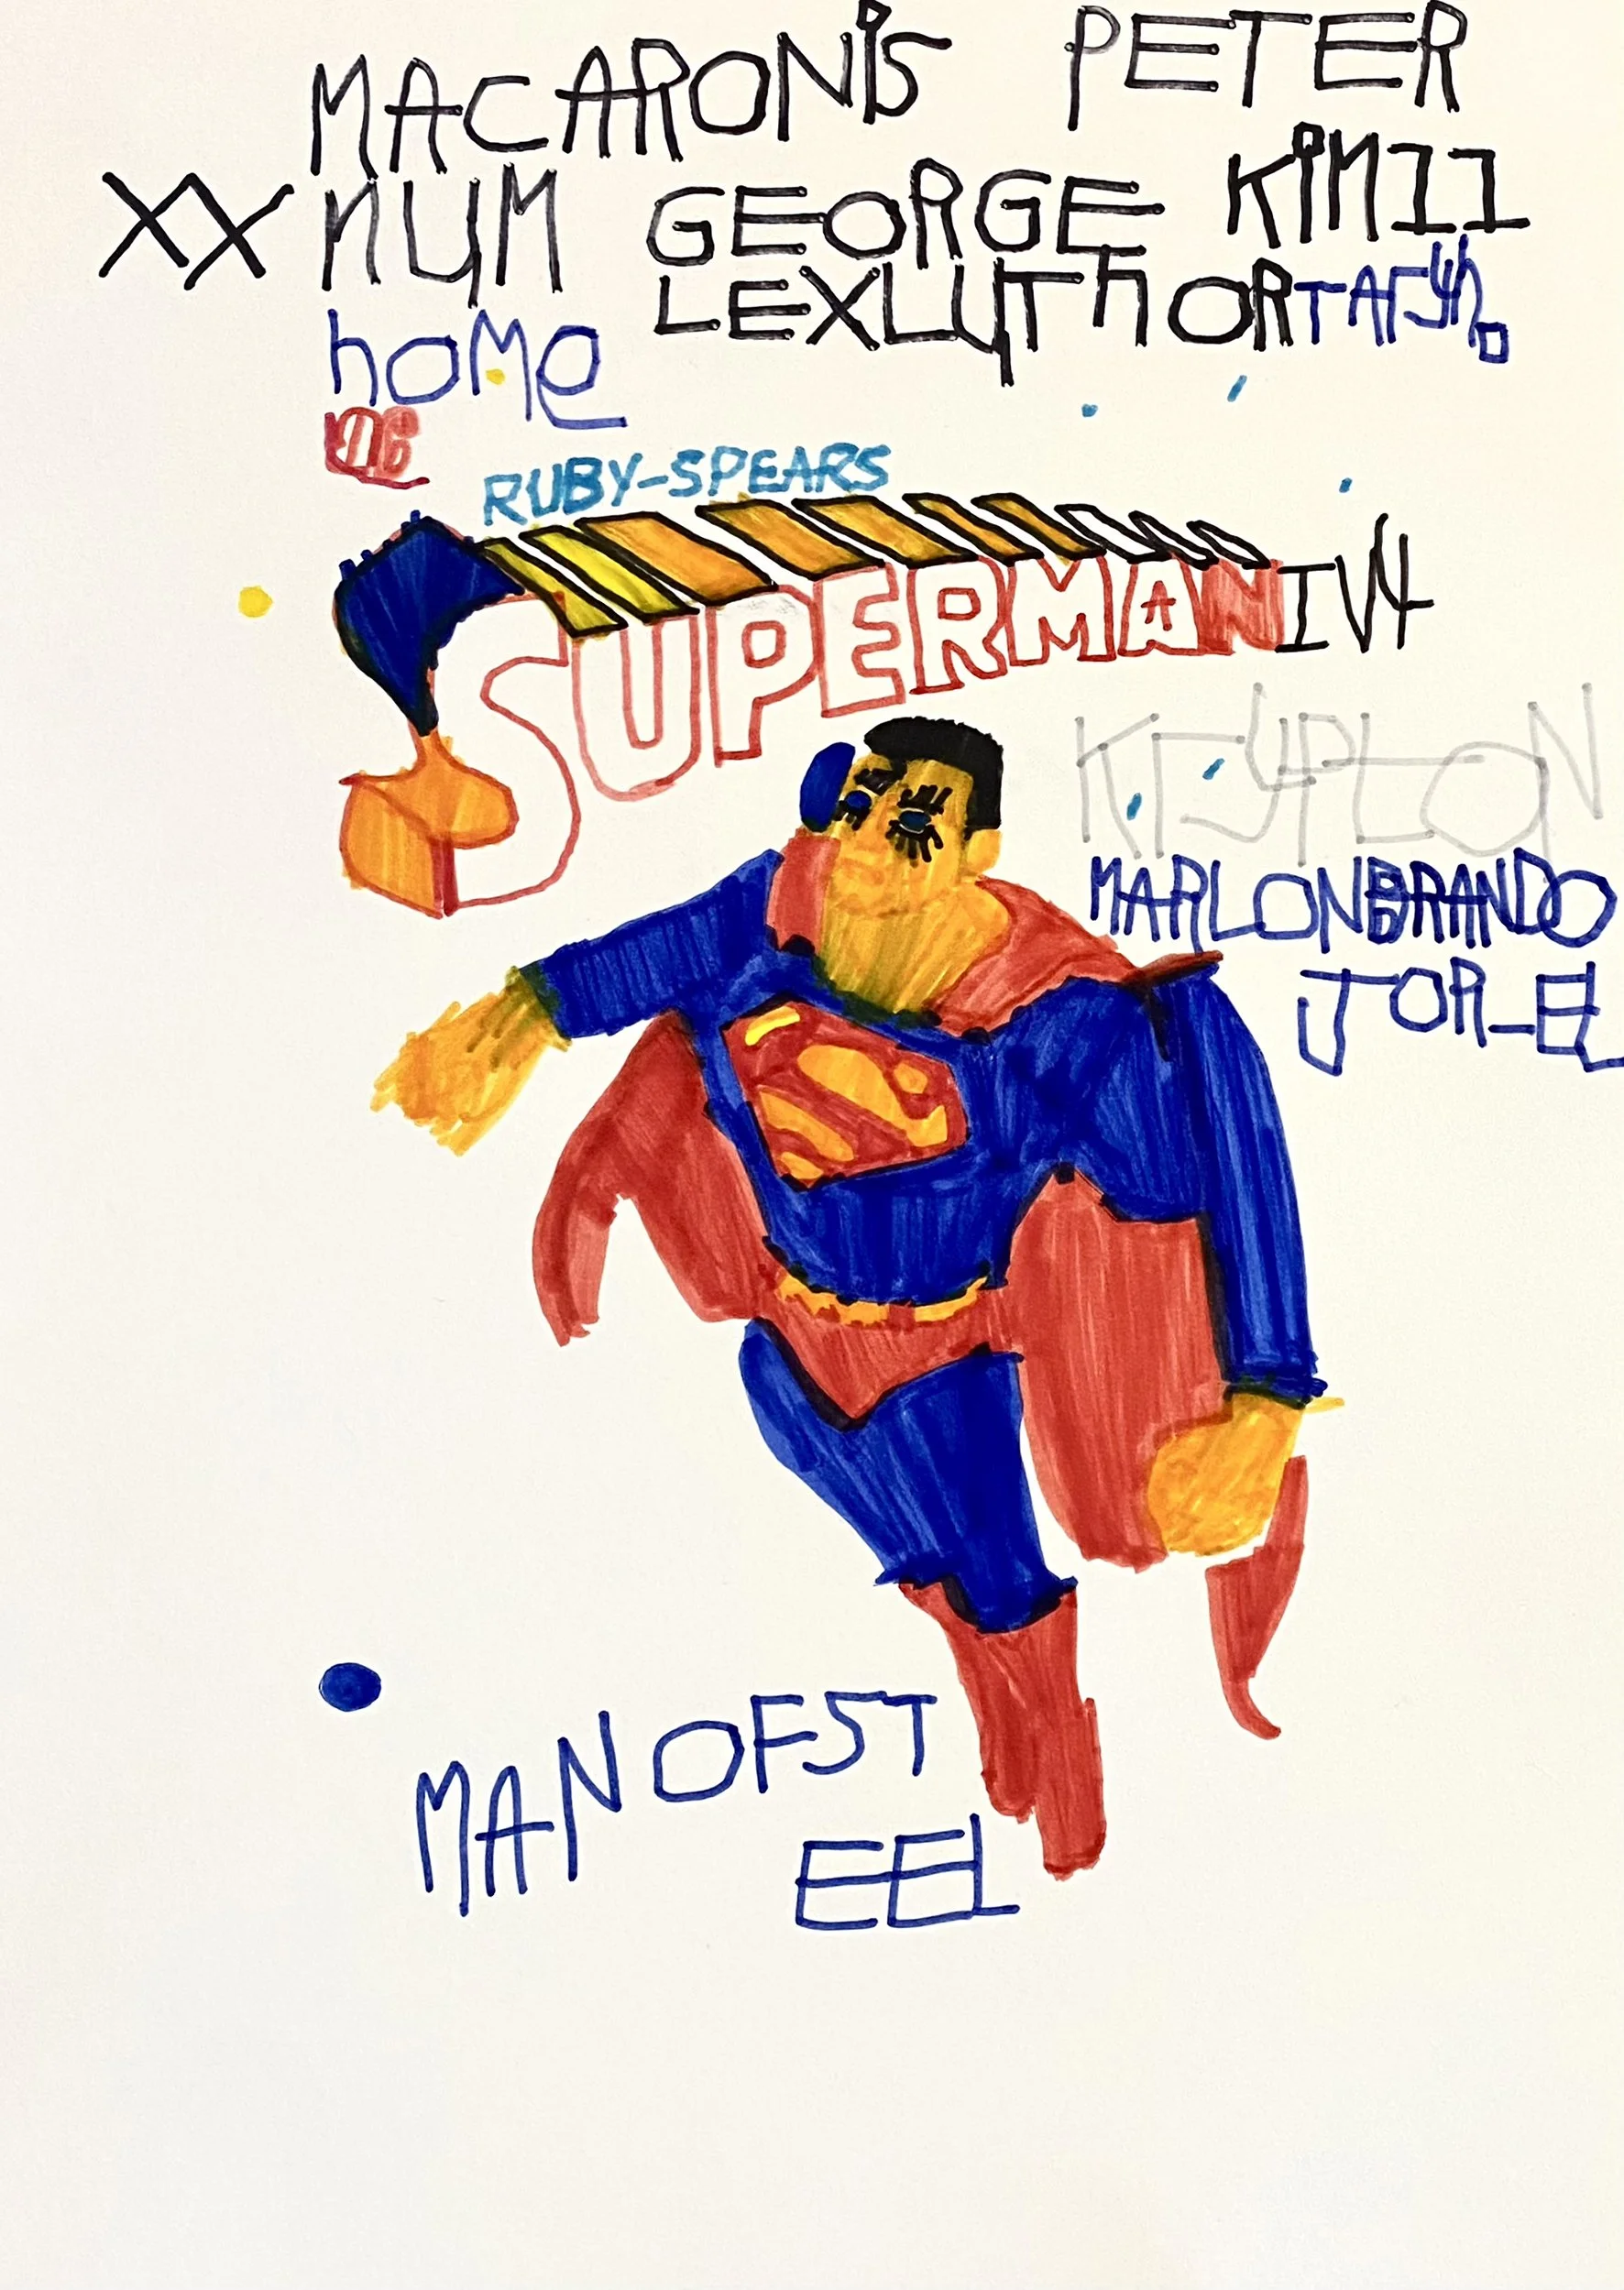 MACARONiS PETER
XX NUM GEORGE KiM11
LEXLUThOR
hoMe
RUBY-SPEARS
SUPERMAN IV4
MARLONBRANDO
JOR-EL
MANOFST
EEL